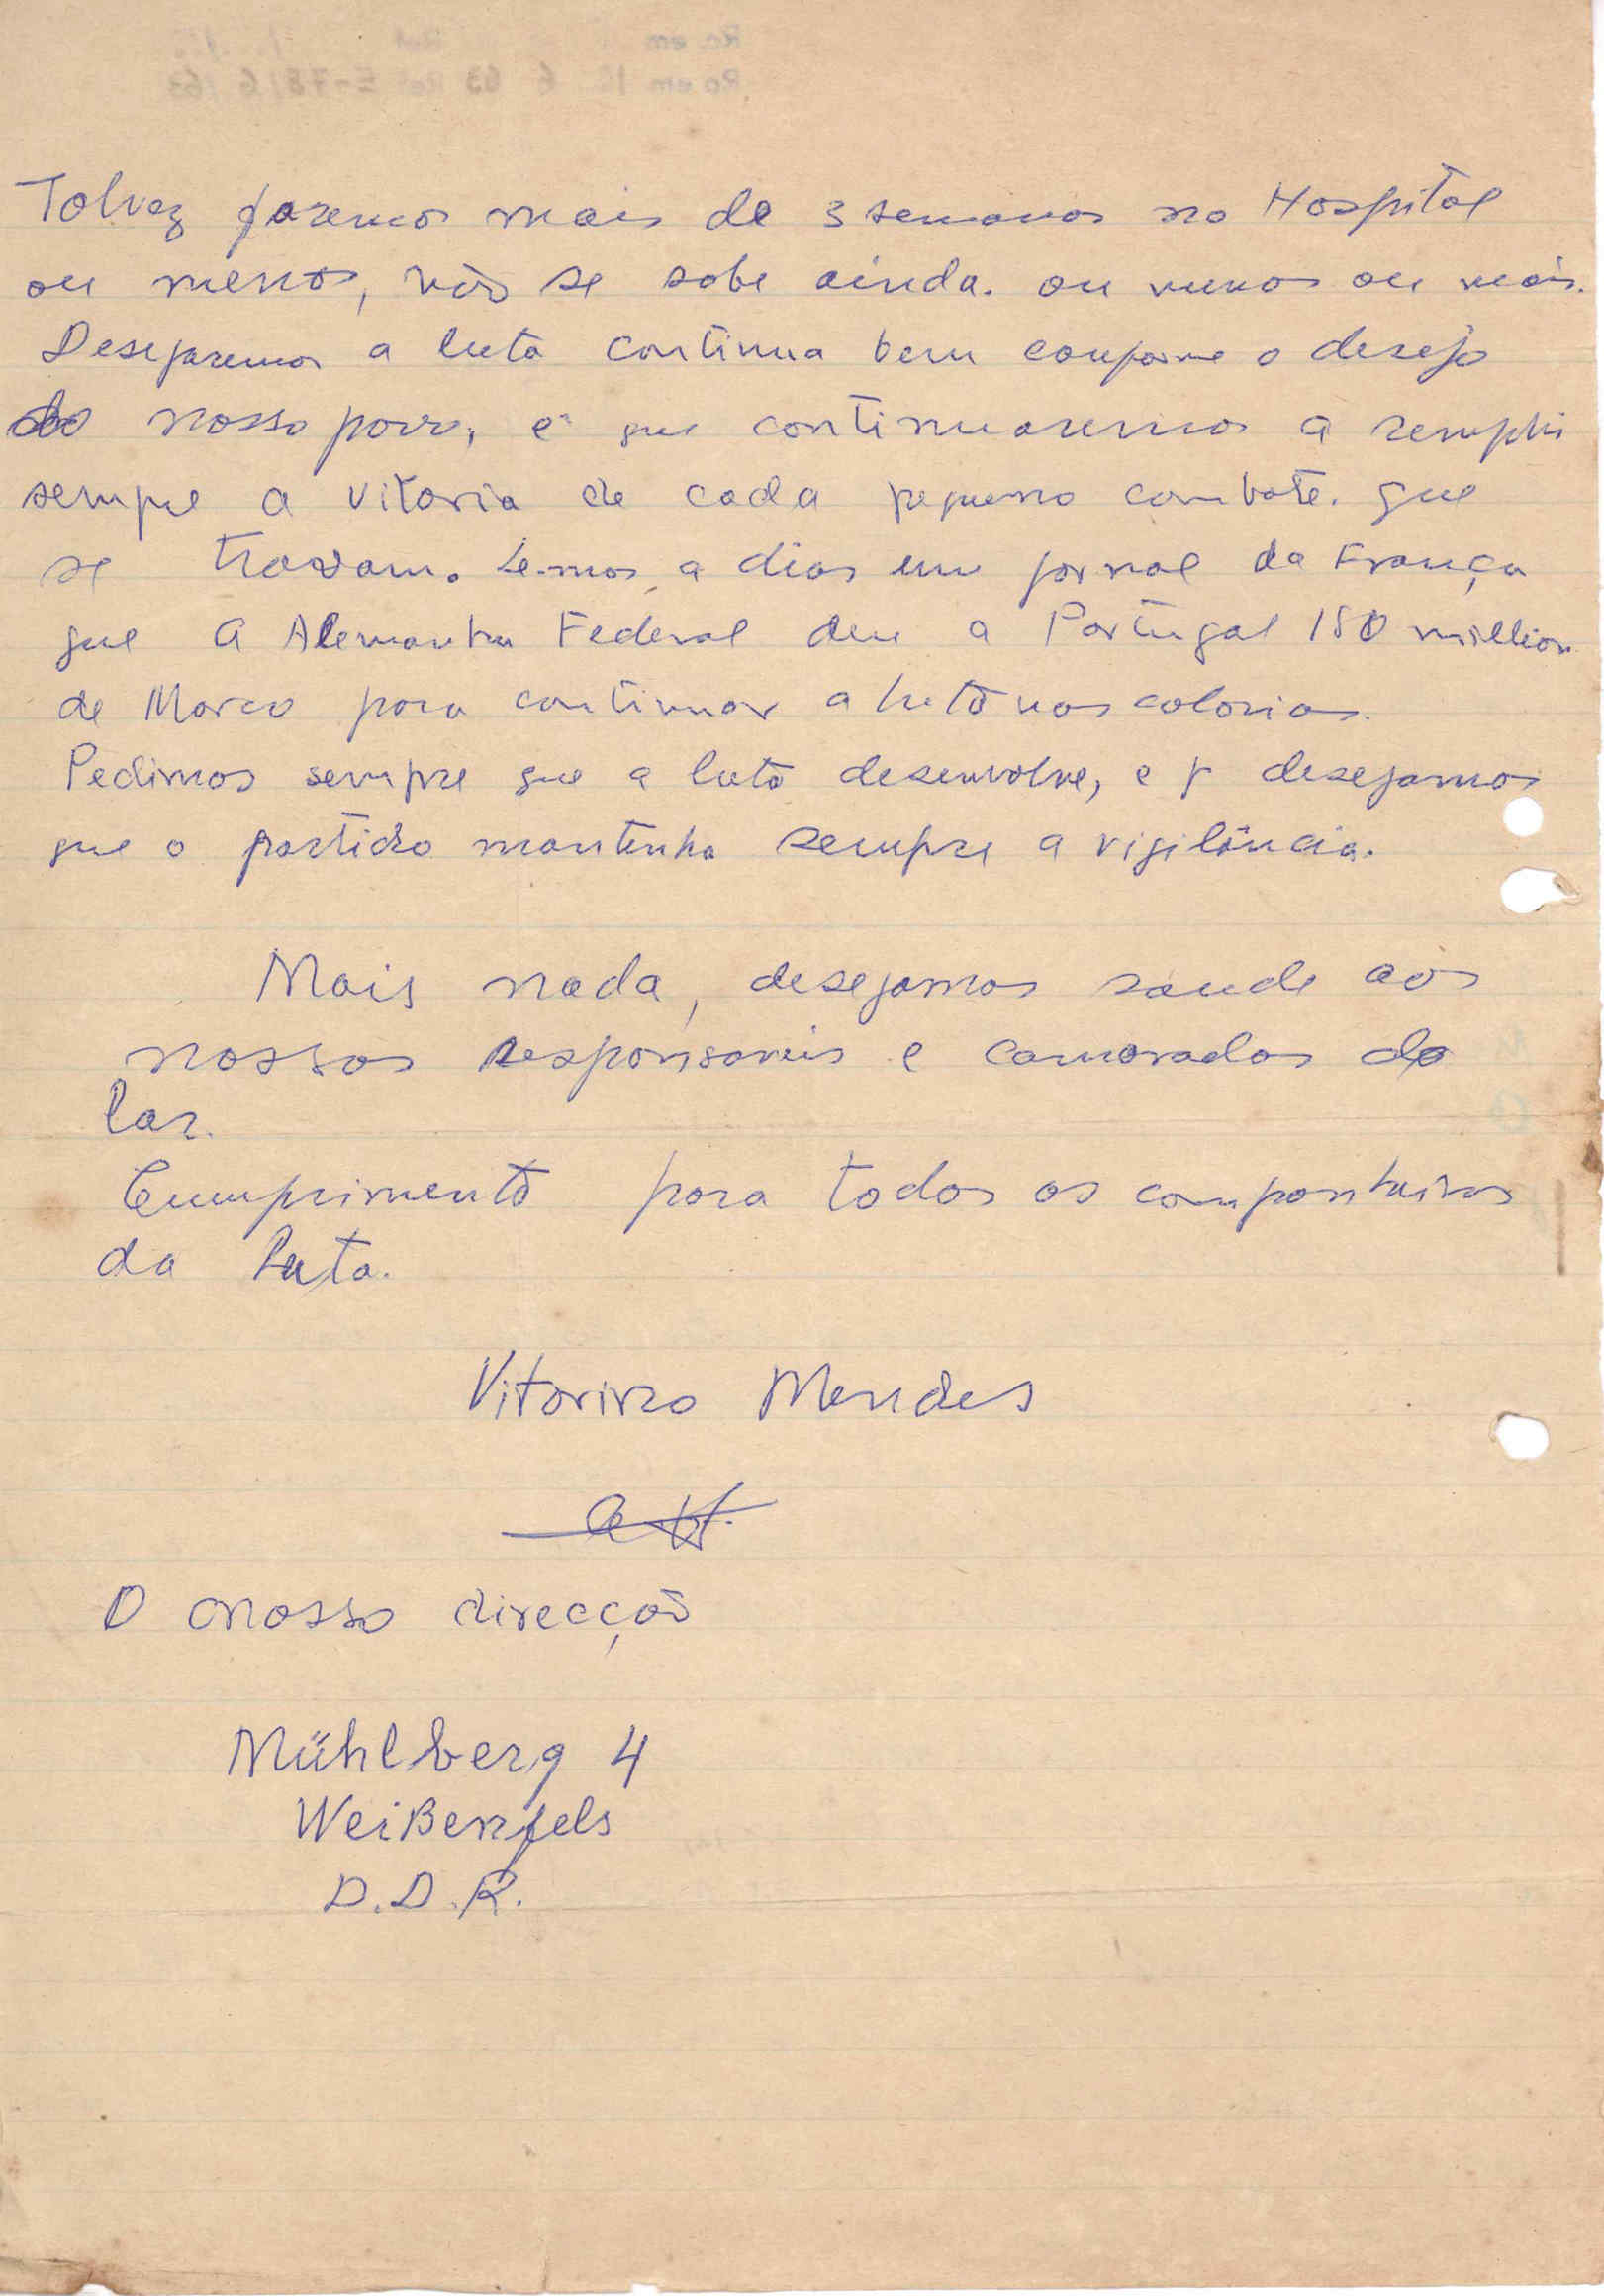 Talvez faremos mais de 3 semanas no Hospital
ou menos, não se sabe ainda. ou menos ou mais.
Desejaremos a luta continua bem conforme o desejo
do nosso povo, e que continuaremos a
sempre a vitoria de cada pequeno combate. que
se travam. Lemos, a dias um jornal da França
que a Alemanha Federal deu a Portugal 180 million
de Marco para continuar a luta nas colonias.
Pedimos sempre que a luta desenvolve, e desejamos
que o partido mantenha sempre a vigilância.
Mais nada, desejamos saude aos
nossos responsaveis e camaradas do
lar.
Cumprimento para todos os companheiros
da luta.
Vitorino Mendes
O nosso direcção
Mühlberg 4
Weißenfels
D.D.R.